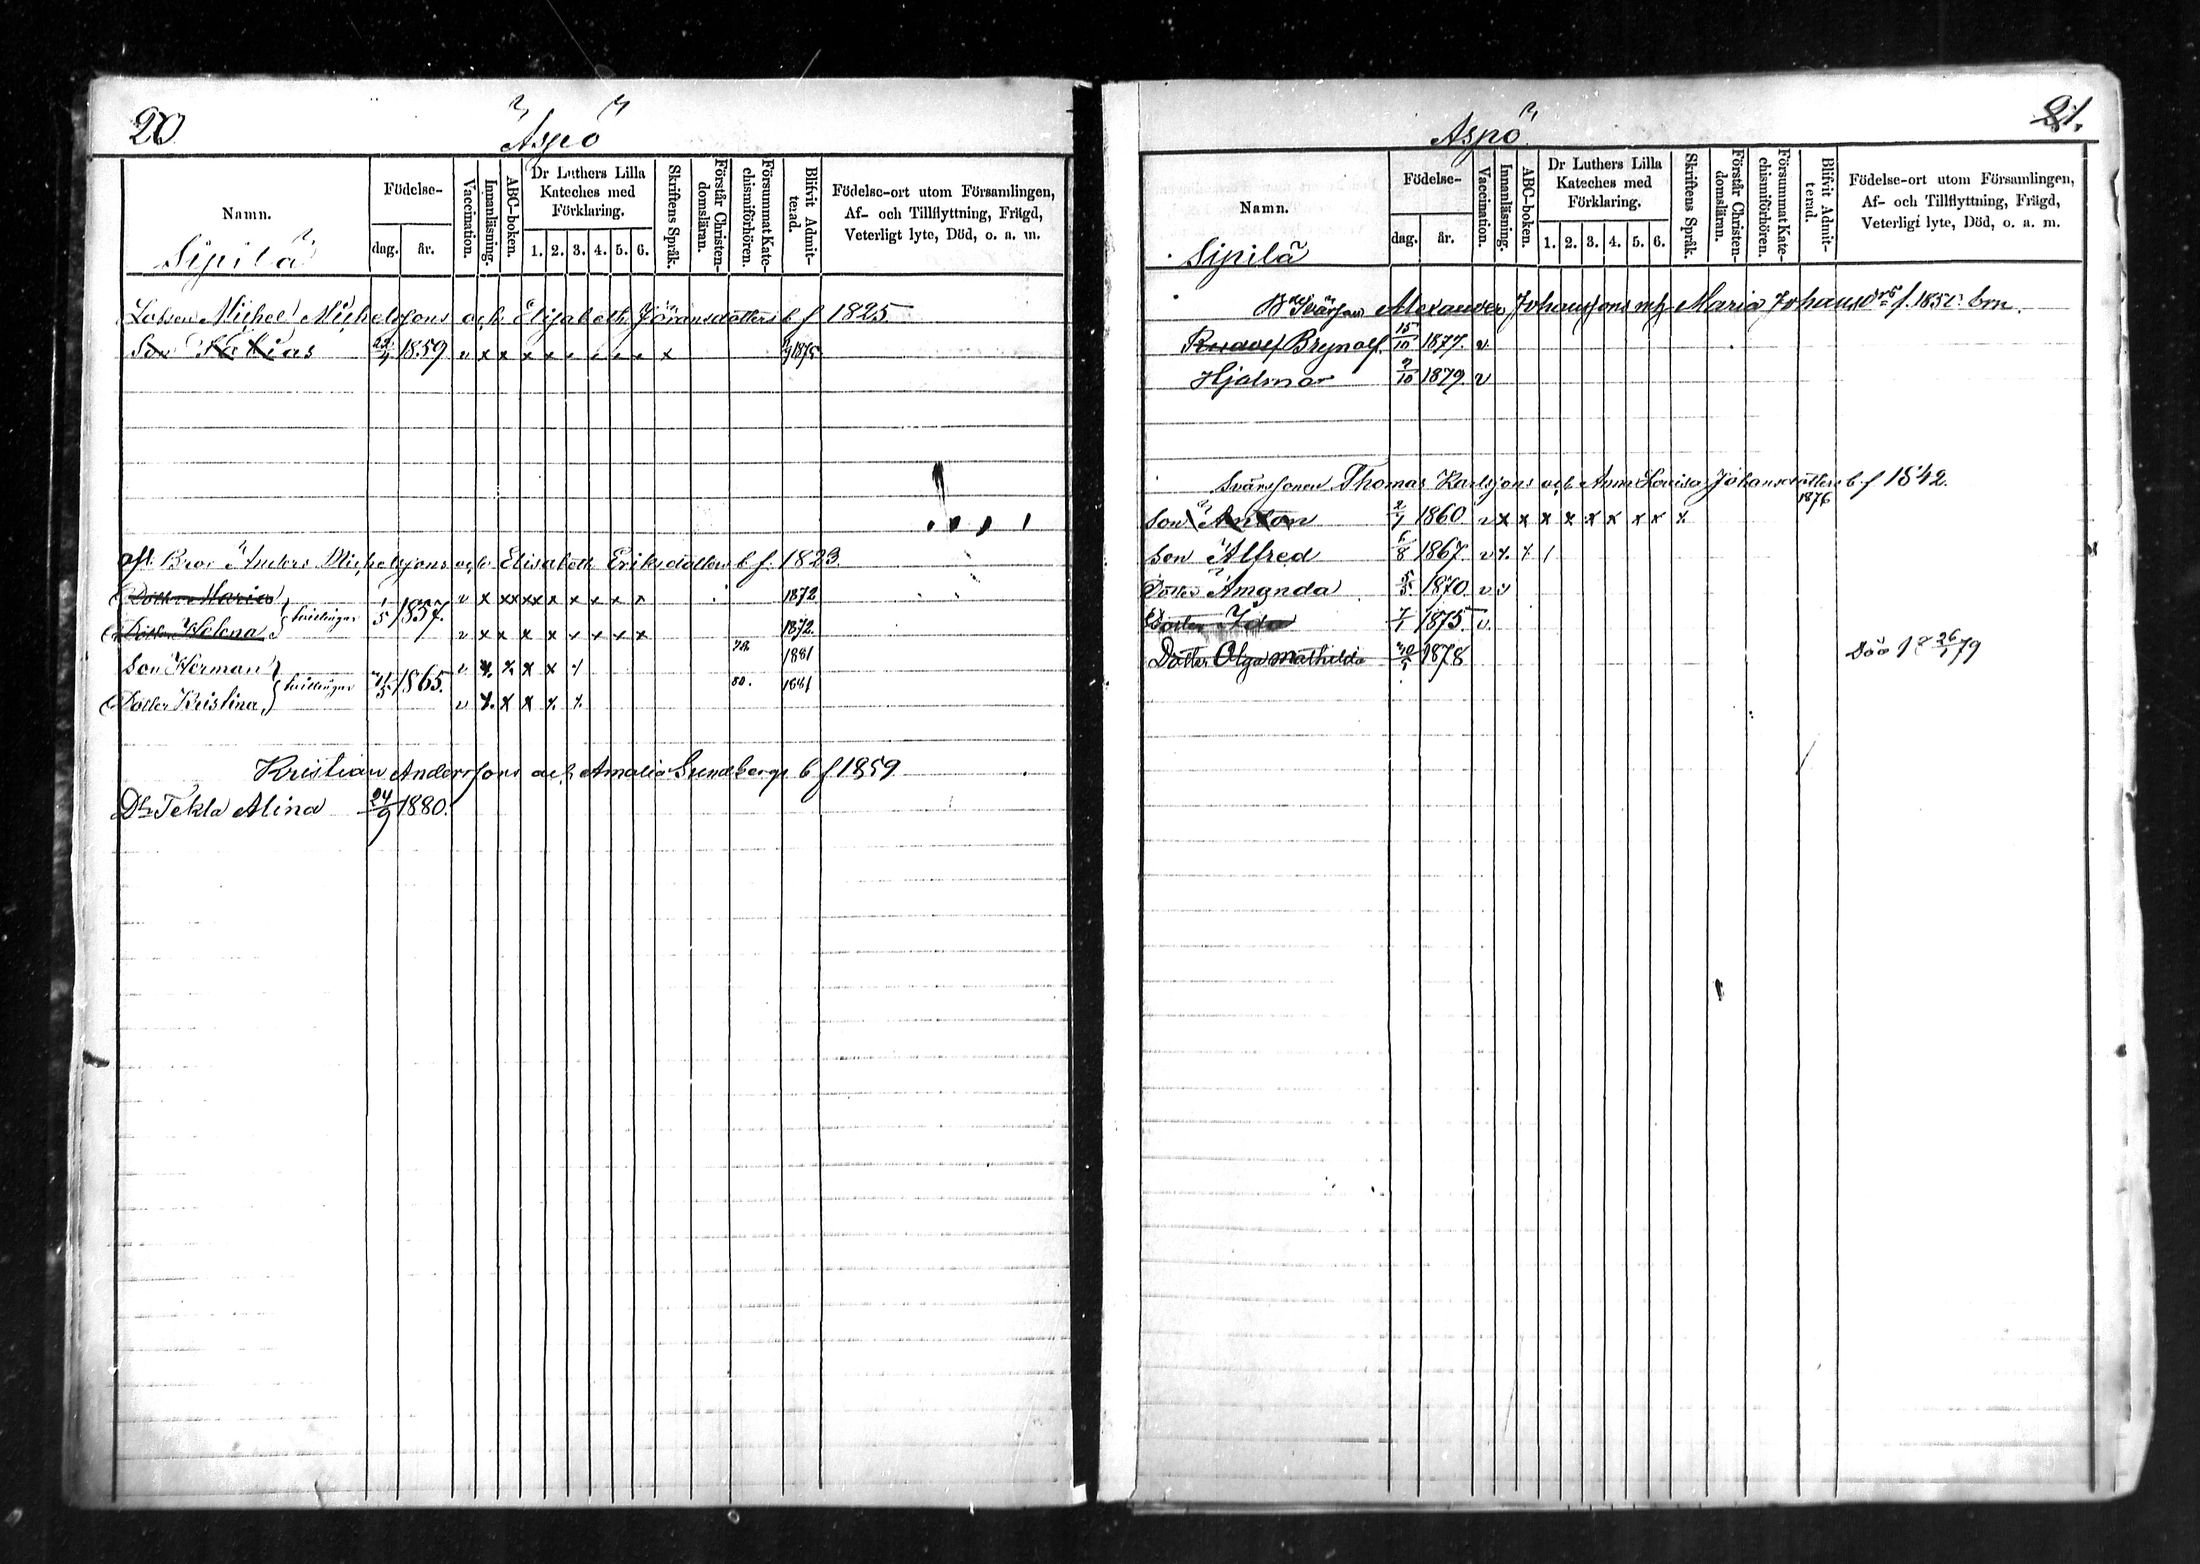 20
Aspö
Namn.
Födelse-
dag.
år.
Vaccination.
Innanläsning.
ABC-boken.
Dr Luthers Lilla
Kateches med
Förklaring.
1. 2. 3. 4. 5. 6.
Skriftens Språk.
Förstår Christen-
domsläran.
Försummat Kate-
chismiförhören.
Blifvit Admit-
terad.
Födelse-ort utom Församlingen,
Af- och Tillflyttning, Frägd,
Veterligt lyte, Död, o. a. m.
Sipilä
Michel Michelssons och Elisabeth Jöransdotters b f 1825
Son 1859 v x x x x x x x x x 1875
afl. Bror Anders Michelsson och Elisabeth Eriksdotters b f. 1823.
Dotter Maria v x xx xx x x x x x 1872
tvillingar 1/5 1857.
Dotter Helena v x x x x x x x x 1872.
Son Herman v x x x x 1881
tvillingar 1865.
80. 1881
Dotter Kristina v x x x x x
Kristian Anderssons och Amalia Sundbergs b f 1859
Dr Tekla Alina 24/9 1880.
21.
Aspö
Namn.
Födelse-
dag.
år.
Vaccination.
Innanläsning.
ABC-boken.
Dr Luthers Lilla
Kateches med
Förklaring.
1. 2. 3. 4. 5. 6.
Skriftens Språk.
Förstår Christen-
domsläran.
Försummat Kate-
chismiförhören.
Blifvit Admit-
terad.
Födelse-ort utom Församlingen,
Af- och Tillflyttning, Frägd,
Veterligt lyte, Död, o. a. m.
Sipilä
Svärson Alexander Johanssons och Maria Johansdrs f. 1850 brn.
Brynolf 15/10 1877. v
Hjalmar 1879. v
Svärsonen Thomas Karlssons och Anna Lovisa Johansdotters b f 1842.
1876
Son Anton 2/1 1860 v x x x x x x x x x
Son Alfred 6/8 1867. v x x /
Dotter Amanda 5/5 1870 v v
Dotter Ida 1875 v.
Dotter Olga Mathilda 1878 Död 26/1 79